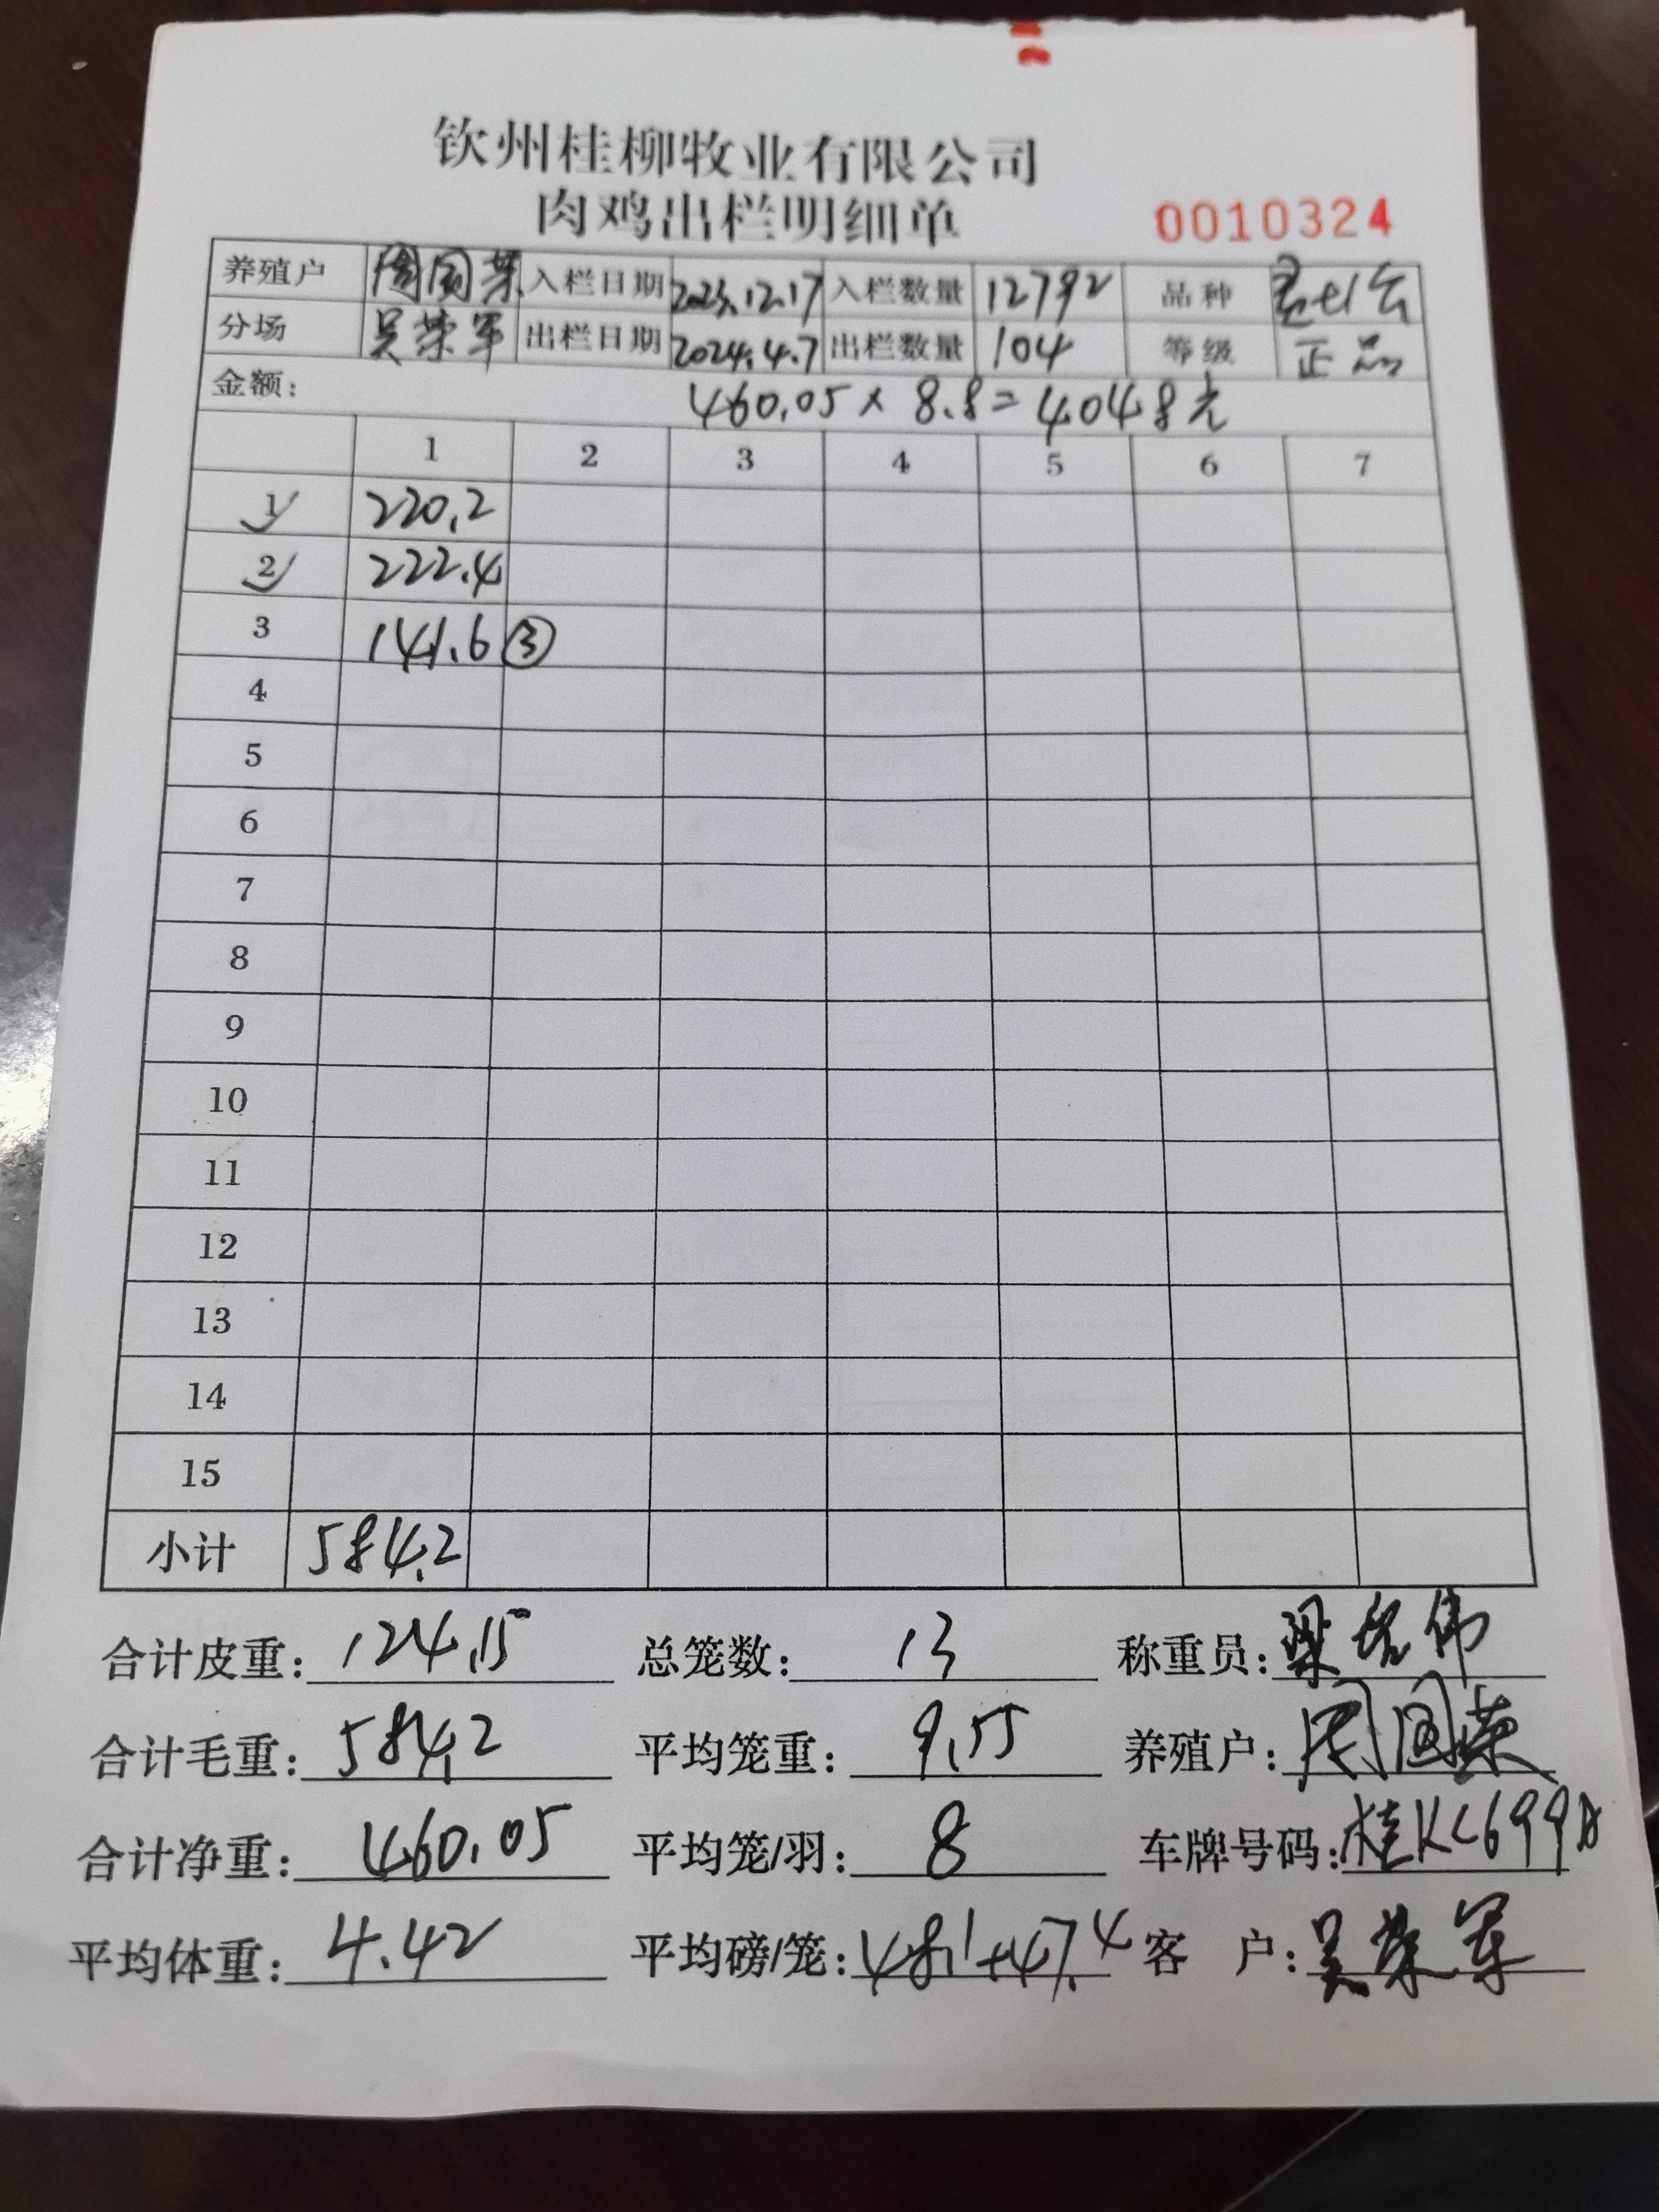 钦州桂柳牧业有限公司
肉鸡出栏明细单 0010324
养殖户 周国荣 入栏日期 2023.12.17 入栏数量 12792 品种
分场 吴荣军 出栏日期 2024.4.7 出栏数量 104 等级 正品
金额: 460.05 x 8.8 = 4048元
1 2 3 4 5 6 7
1 220.2
2 222.4
3 141.6 ③
4
5
6
7
8
9
10
11
12
13
14
15
小计 584.2
合计皮重: 124.15 总笼数: 13 称重员: 梁 伟
合计毛重: 584.2 平均笼重: 9.55 养殖户: 周国荣
合计净重: 460.05 平均笼/羽: 8 车牌号码: 桂KC699
平均体重: 4.42 平均磅/笼: 48.1+47.4 客 户: 吴荣军